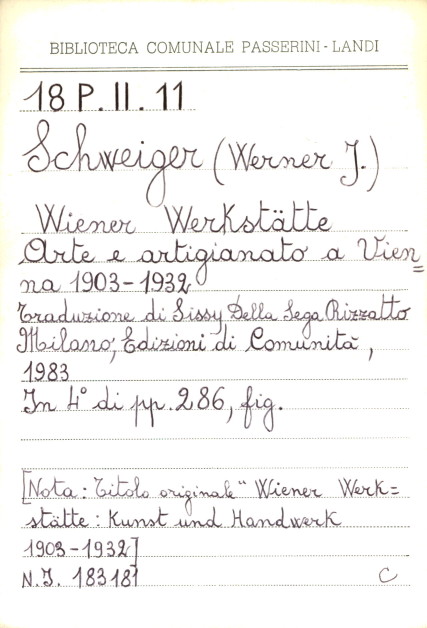 BIBLIOTECA COMUNALE PASSERINI - LANDI
18 P. II. 11
Schweiger (Werner J.)
Wiener Werkstätte
Arte e artigianato a Vien=
na 1903-1932
Traduzione di Sissy Della Sega Rizzatto
Milano, Edizioni di Comunità,
1983
In 4° di pp. 286, fig.
[Nota: Titolo originale "Wiener Werk=
stätte: Kunst und Handwerk
1903-1932]
N.I. 183181
C